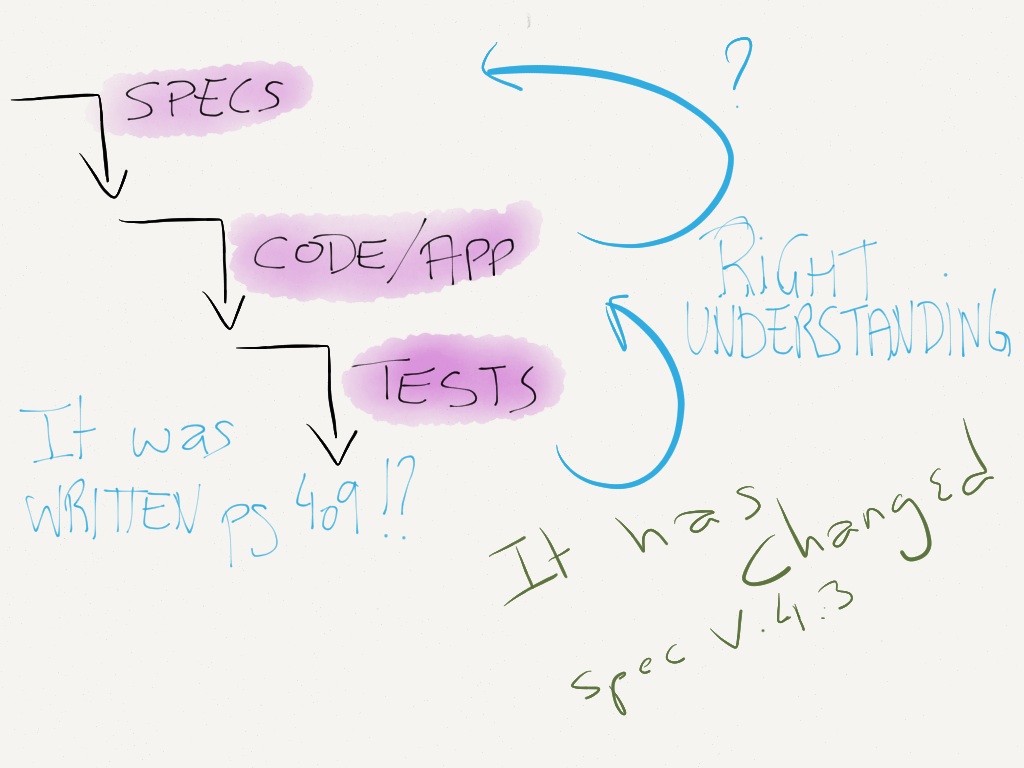 ?
SPECS
CODE/APP
RIGHT
UNDERSTANDING
TESTS
It was
WRITTEN pg 409 !?
It has
changed
spec v.4.3